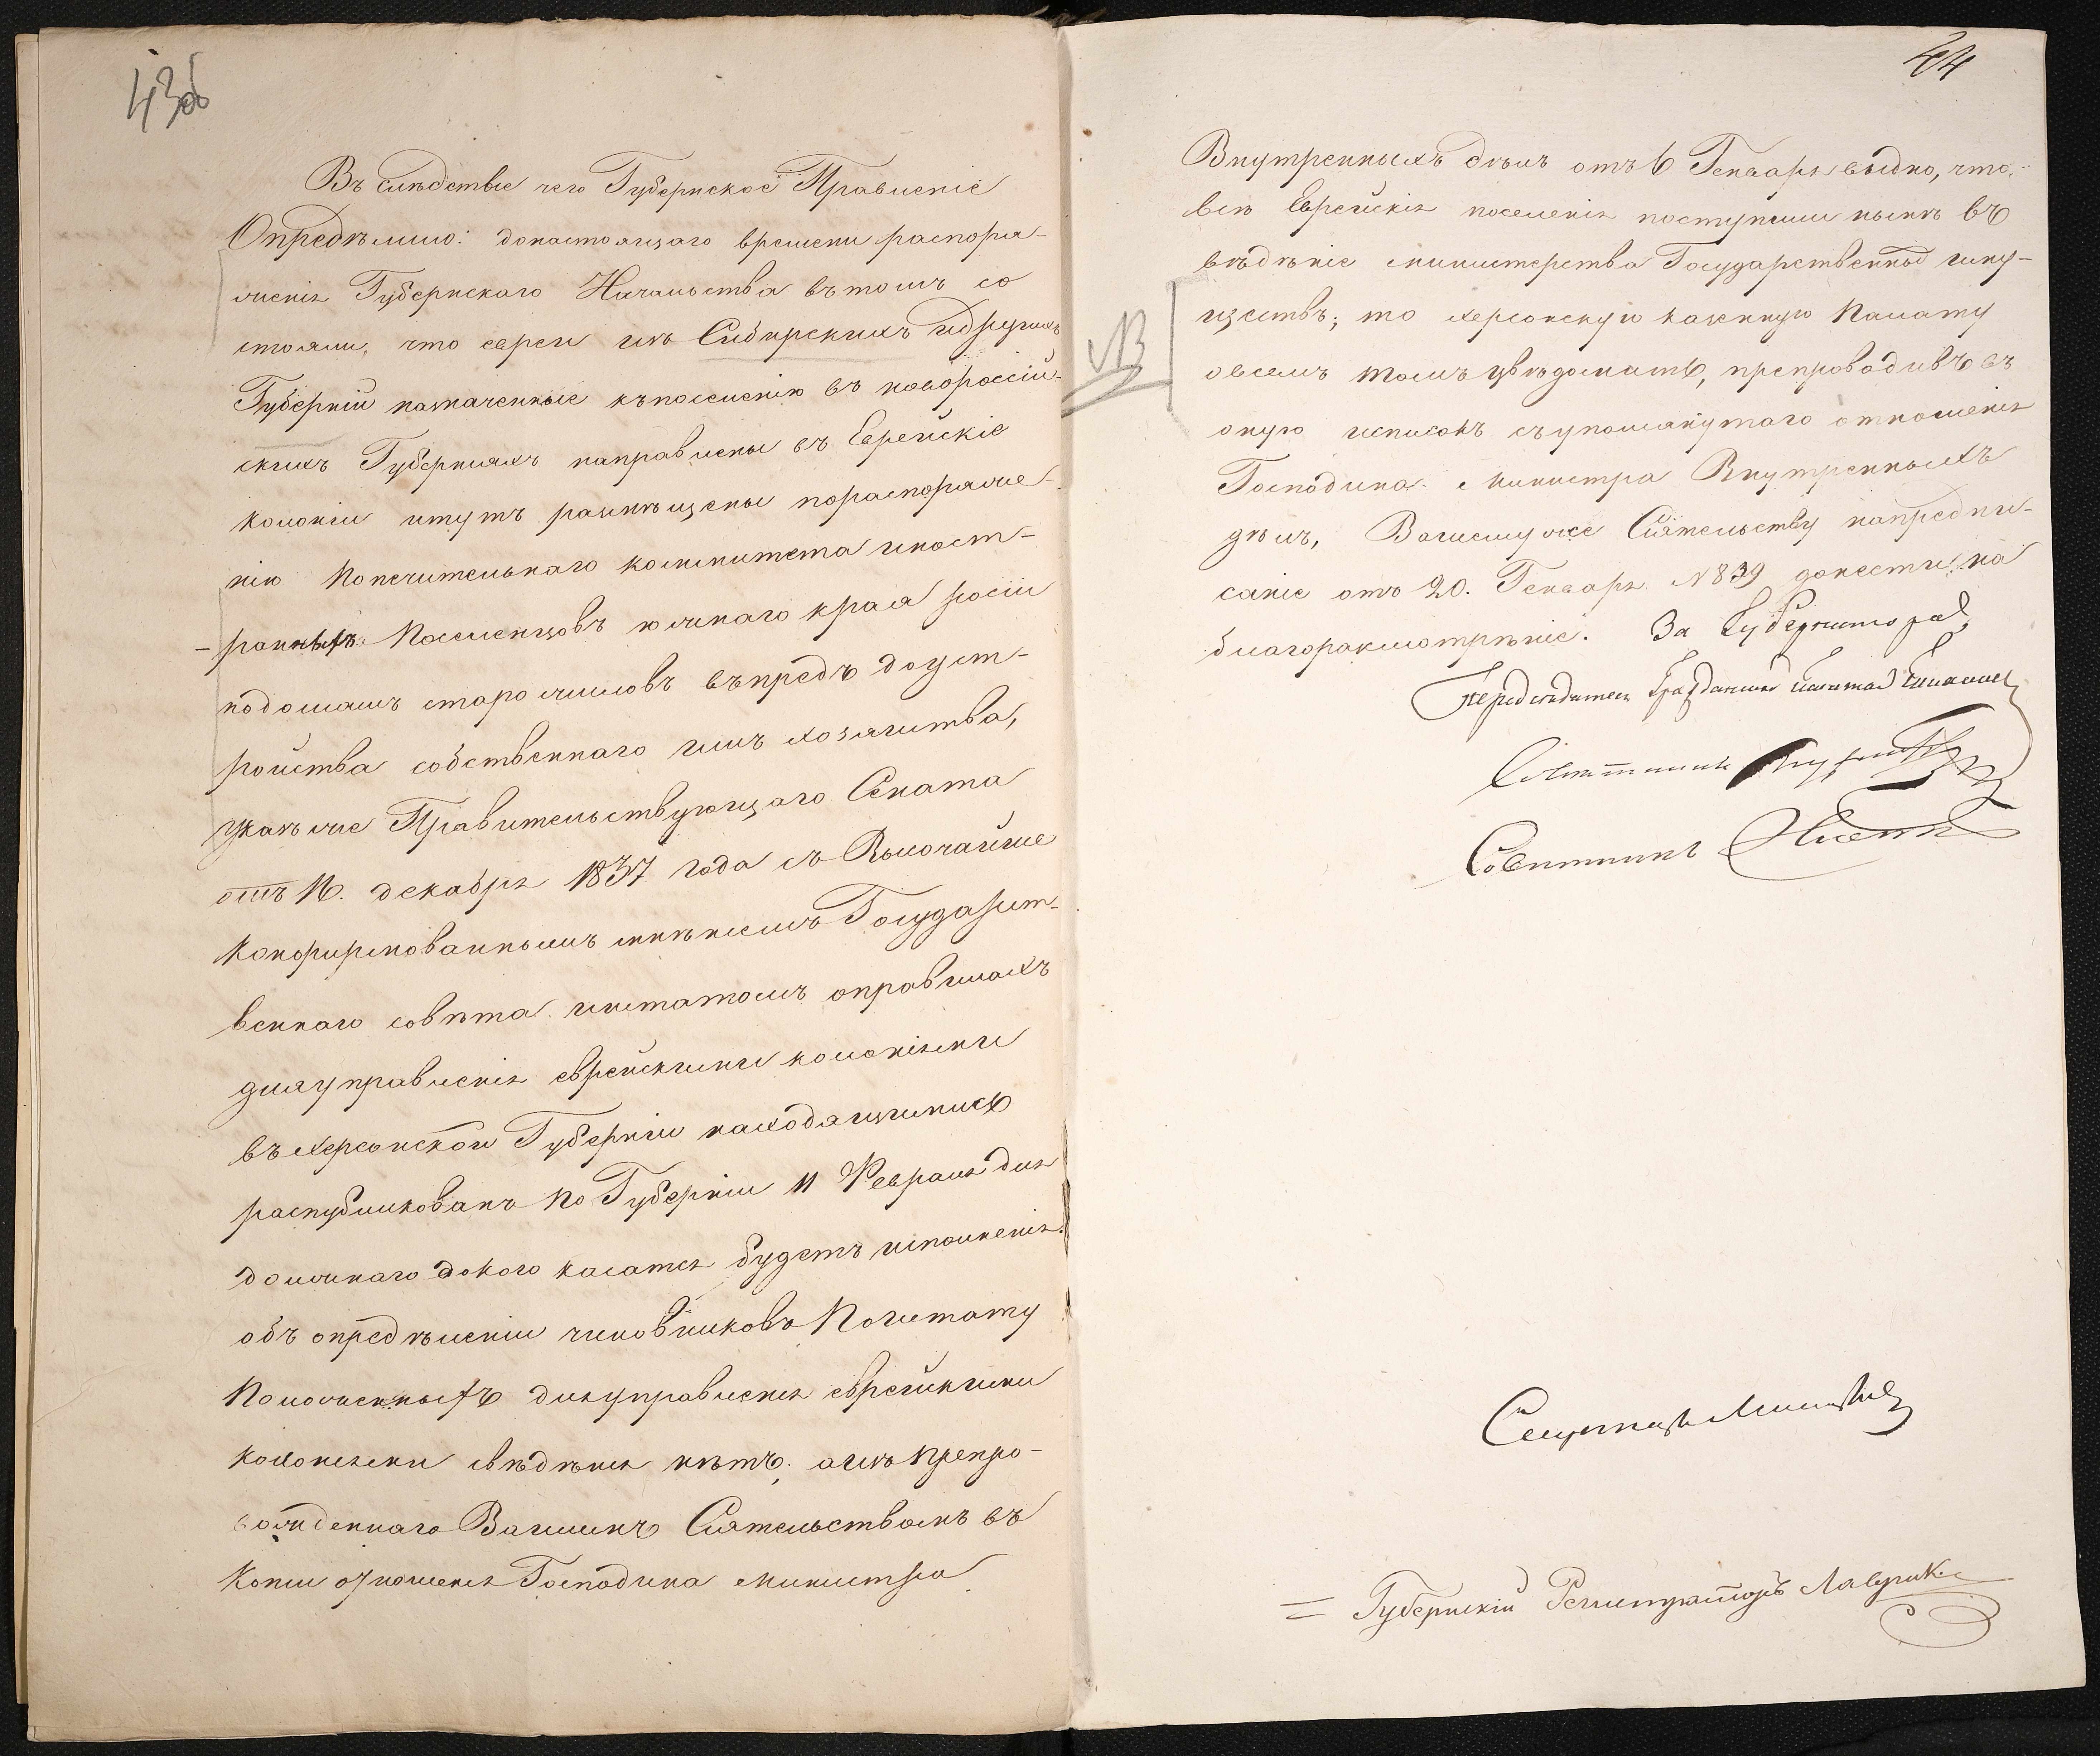 43об
Въ слѣдствіе чего Губернское Правленіе
Опредѣлило: донастоящаго времени распоря-
женія Губернскаго Начальства въ томъ со
стояли, что евреи изъ Сибирскихъ идругихъ
Губерній назначенные къпоселенію въ новороссій-
скихъ Губерніяхъ направлены въ Еврейскіе
колоніи итутъ размѣщены пораспоряже-
нію Попечительнаго комитета иност-
-ранныхъ Поселенцовъ южнаго края росіи
подомамъ старожиловъ въпредъ доуст-
ройства собственнаго имъ хозяйства,
указъ же Правительствующаго Сената
отъ 16. декабря 1837 года съ Высочайше
конфирмованнымъ мнѣніемъ Государст-
веннаго совѣта иштатомъ оправилахъ
дляуправленія еврейскими колоніями
въ Херсонской Губерніи находящимися
распубликованъ по Губерніи 11 Февраля для
должнаго докого касатся будетъ исполненія.
объ опредѣленіи чиновниковъ Поштату
Положенныхъ дляуправленія еврейскими
колоніями свѣдѣнія нѣтъ; аизъ препро-
вожденнаго Вашимъ Сіятельствомъ въ
копіи отношенія Господина министра
44
Внутренныхъ дѣлъ отъ 6 Генваря видно, что
всѣ Еврейскія поселенія поступили нынѣ въ
вѣдѣніе министерства Государственныхъ иму-
ществъ; то херсонскую казенную Палату
NB
овсемъ томъ увѣдомить, препроводивъ въ
оную исписокъ съупомянутаго отношенія
Господина министра Внутренныхъ
дѣлъ, Вашемуже Сіятельству напредпи-
саніе отъ 20. Генваря №839 донести на
благоразмотрѣніе. За Губернатора,
Предсѣдатель Гражданской Палаты
Совѣтникъ
Совѣтникъ
Секретарь
Губернскій Регистраторъ Лаврик